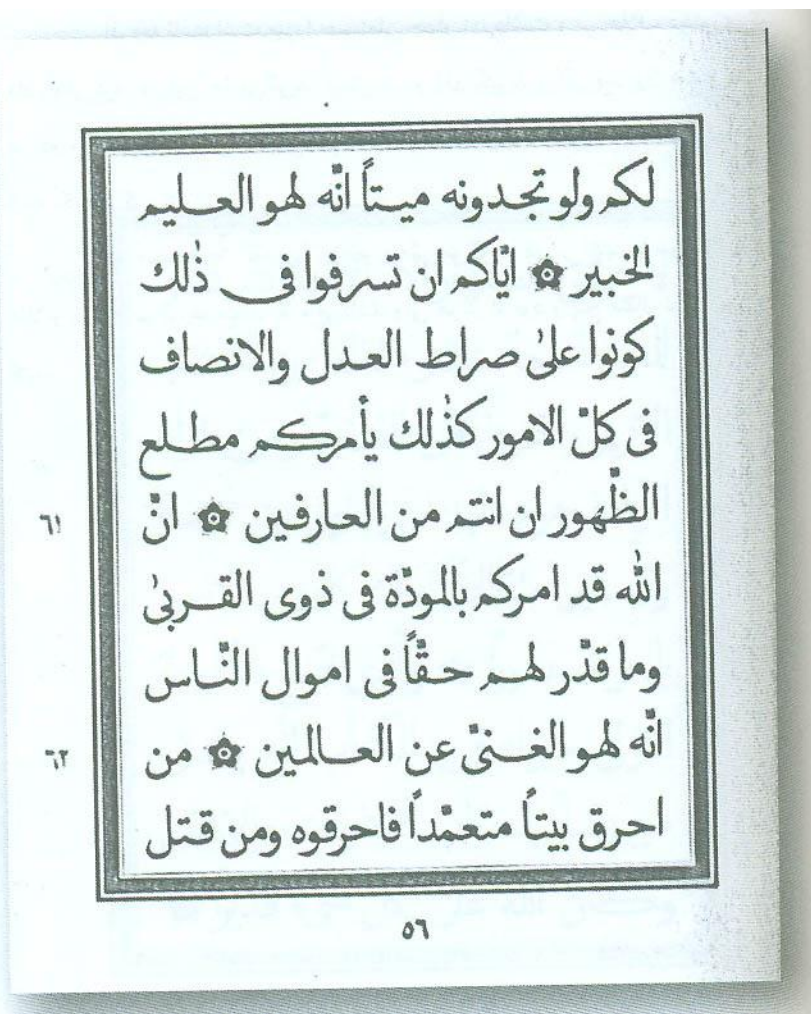 لكم ولو تجدونه ميتاً انّه لهو العليم
الخبير ۞ ايّاكم ان تسرفوا فى ذٰلك
كونوا علىٰ صراط العدل والانصاف
فى كلّ الامور كذٰلك يأمركم مطلع
الظّهور ان انتم من العارفين ۞ انّ
٦١
الله قد امركم بالمودّة فى ذوى القربىٰ
وما قدّر لهم حقّاً فى اموال النّاس
انّه لهو الغنىّ عن العالمين ۞ من
٦٢
احرق بيتاً متعمّداً فاحرقوه ومن قتل
٥٦